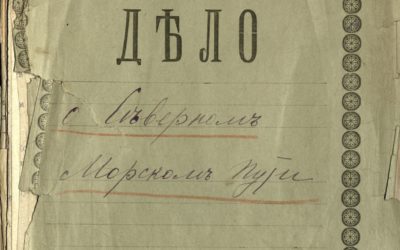 ДѢЛО
о Сѣверномъ
Морскомъ Пути